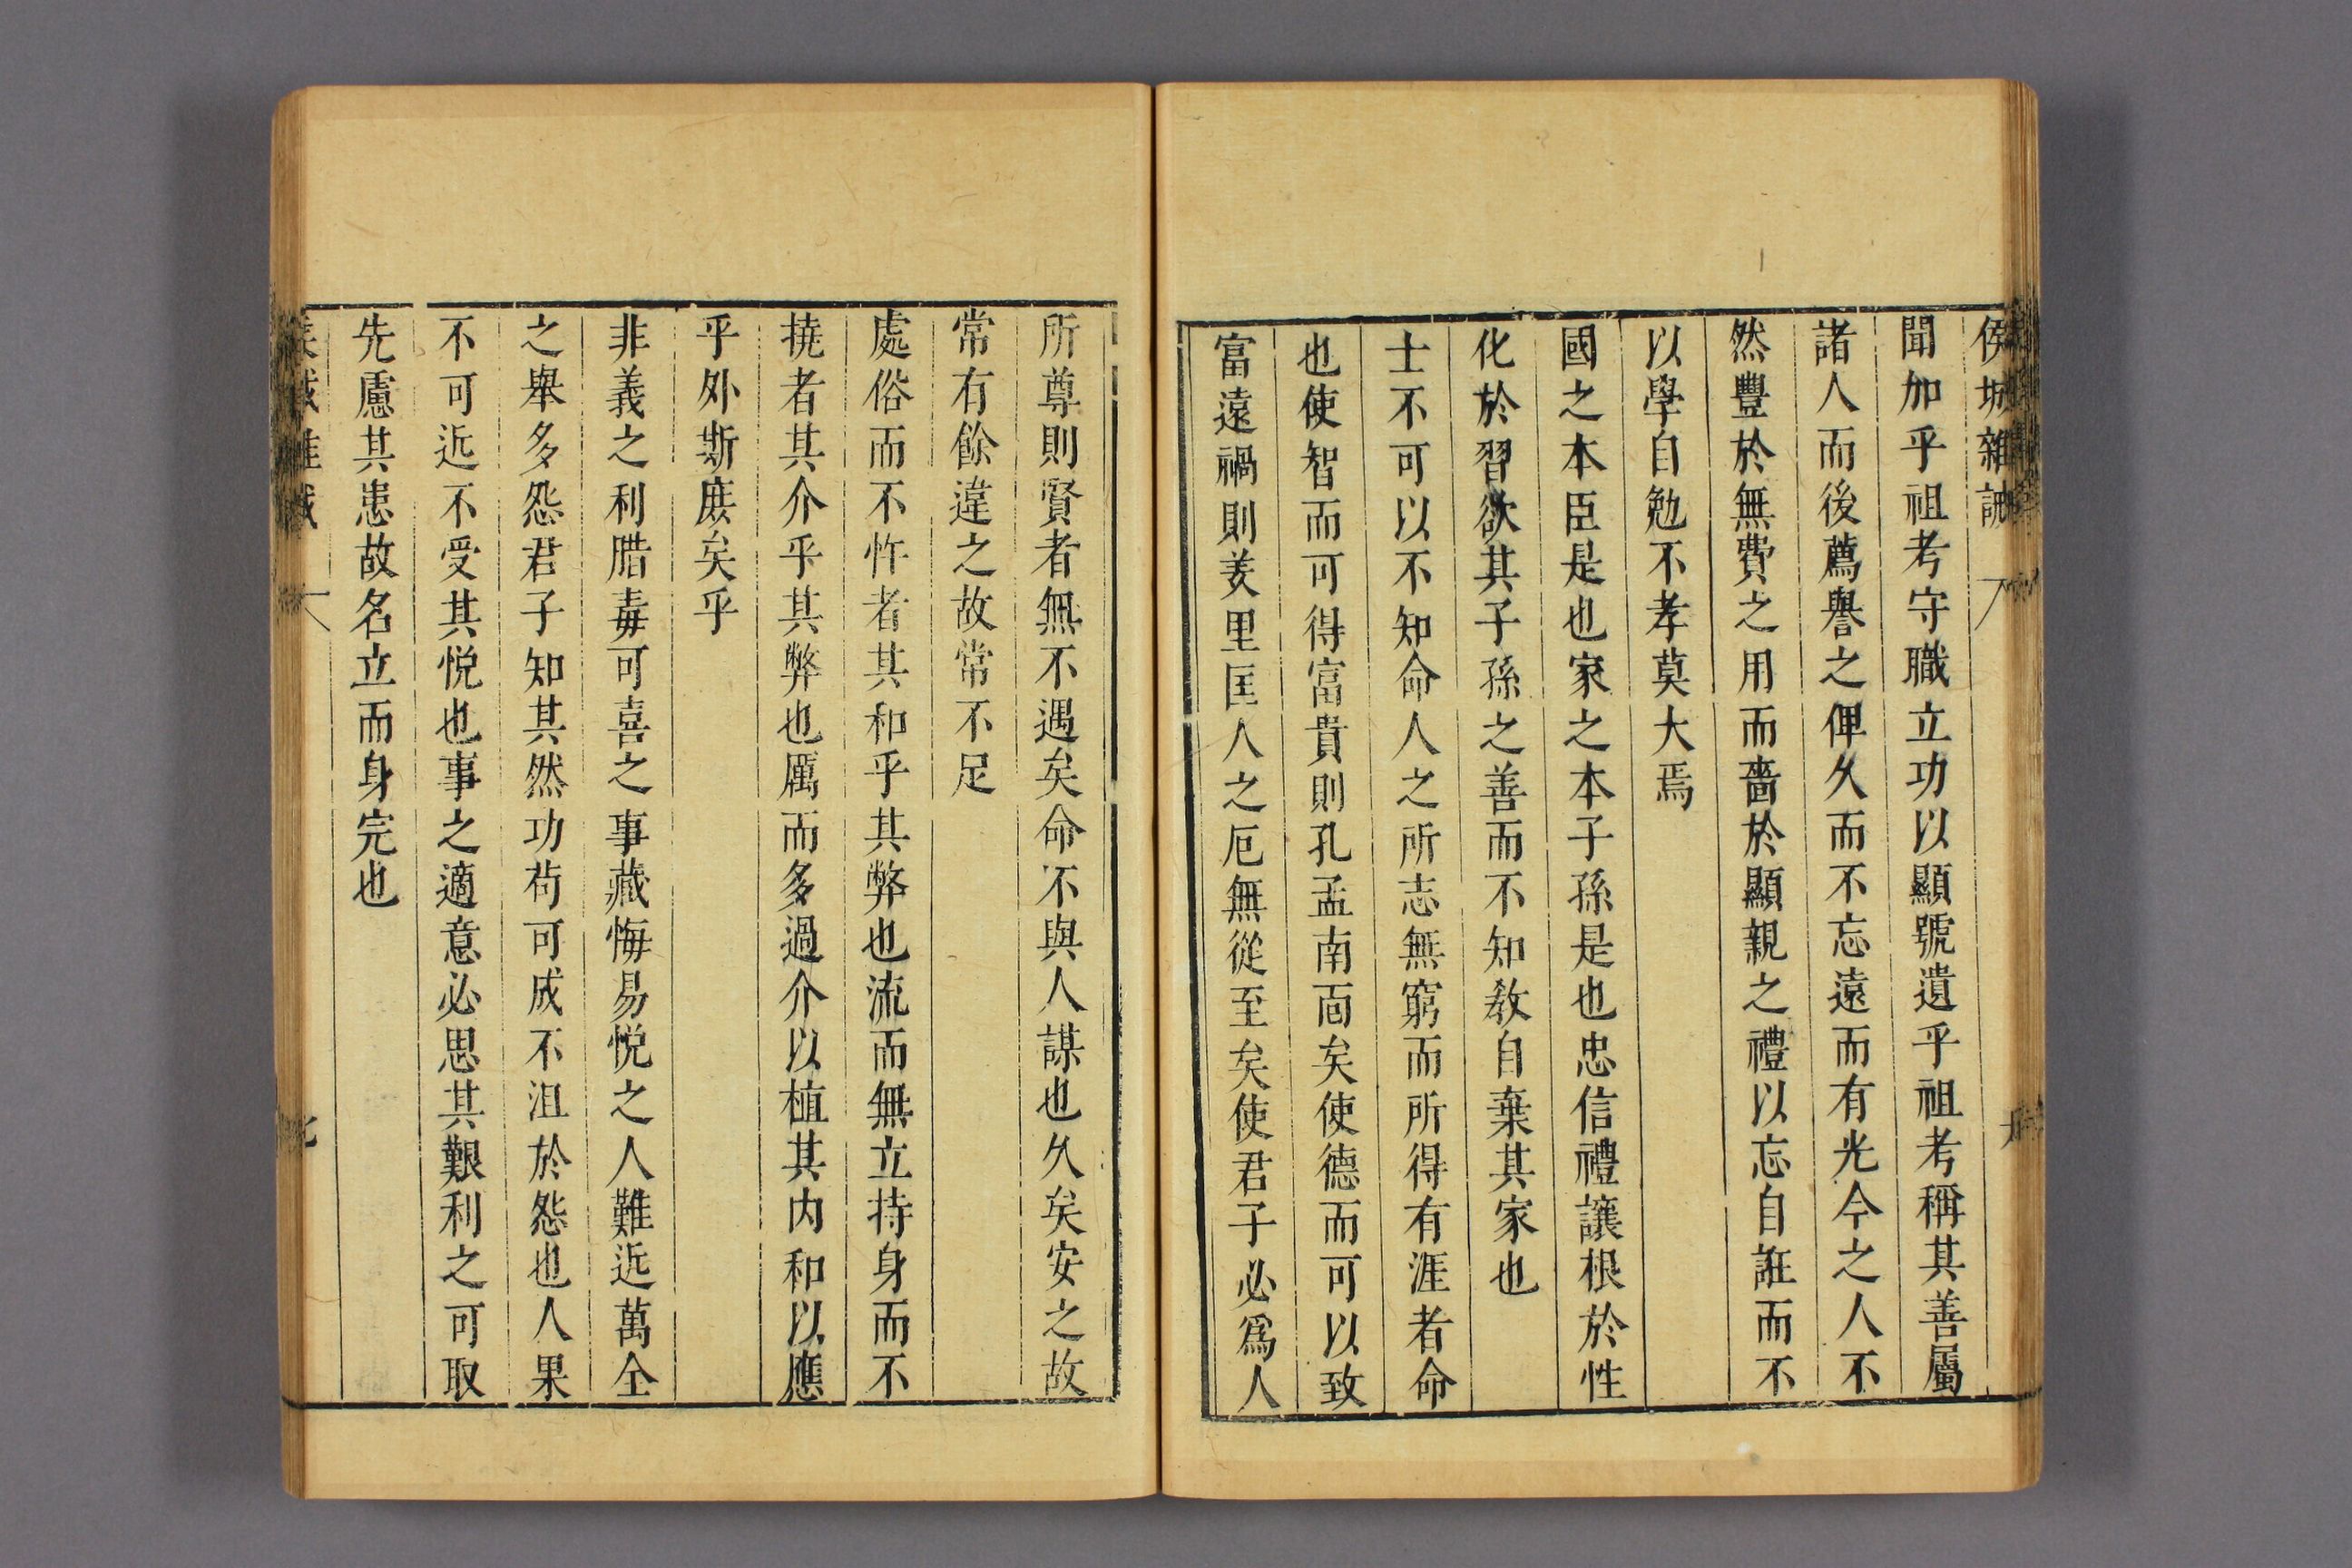 侯城雜誡
聞加乎祖考守職立功以顯號遺乎祖考稱其善屬
諸人而後薦譽之俾久而不忘遠而有光今之人不
然豐於無費之用而嗇於顯親之禮以忘自誑而不
以學自勉不孝莫大焉
國之本臣是也家之本子孫是也忠信禮讓根於性
化於習欲其子孫之善而不知教自棄其家也
士不可以不知命人之所志無窮而所得有涯者命
也使智而可得富貴則孔孟南面矣使德而可以致
富遠禍則羑里匡人之厄無從至矣使君子必爲人
所尊則賢者無不遇矣命不與人謀也久矣安之故
常有餘違之故常不足
處俗而不忤者其和乎其弊也流而無立持身而不
撓者其介乎其弊也厲而多過介以植其內和以應
乎外斯庶矣乎
非義之利腊毒可喜之事藏悔易悅之人難近萬全
之舉多怨君子知其然功苟可成不沮於怨也人果
不可近不受其悅也事之適意必思其艱利之可取
先慮其患故名立而身完也